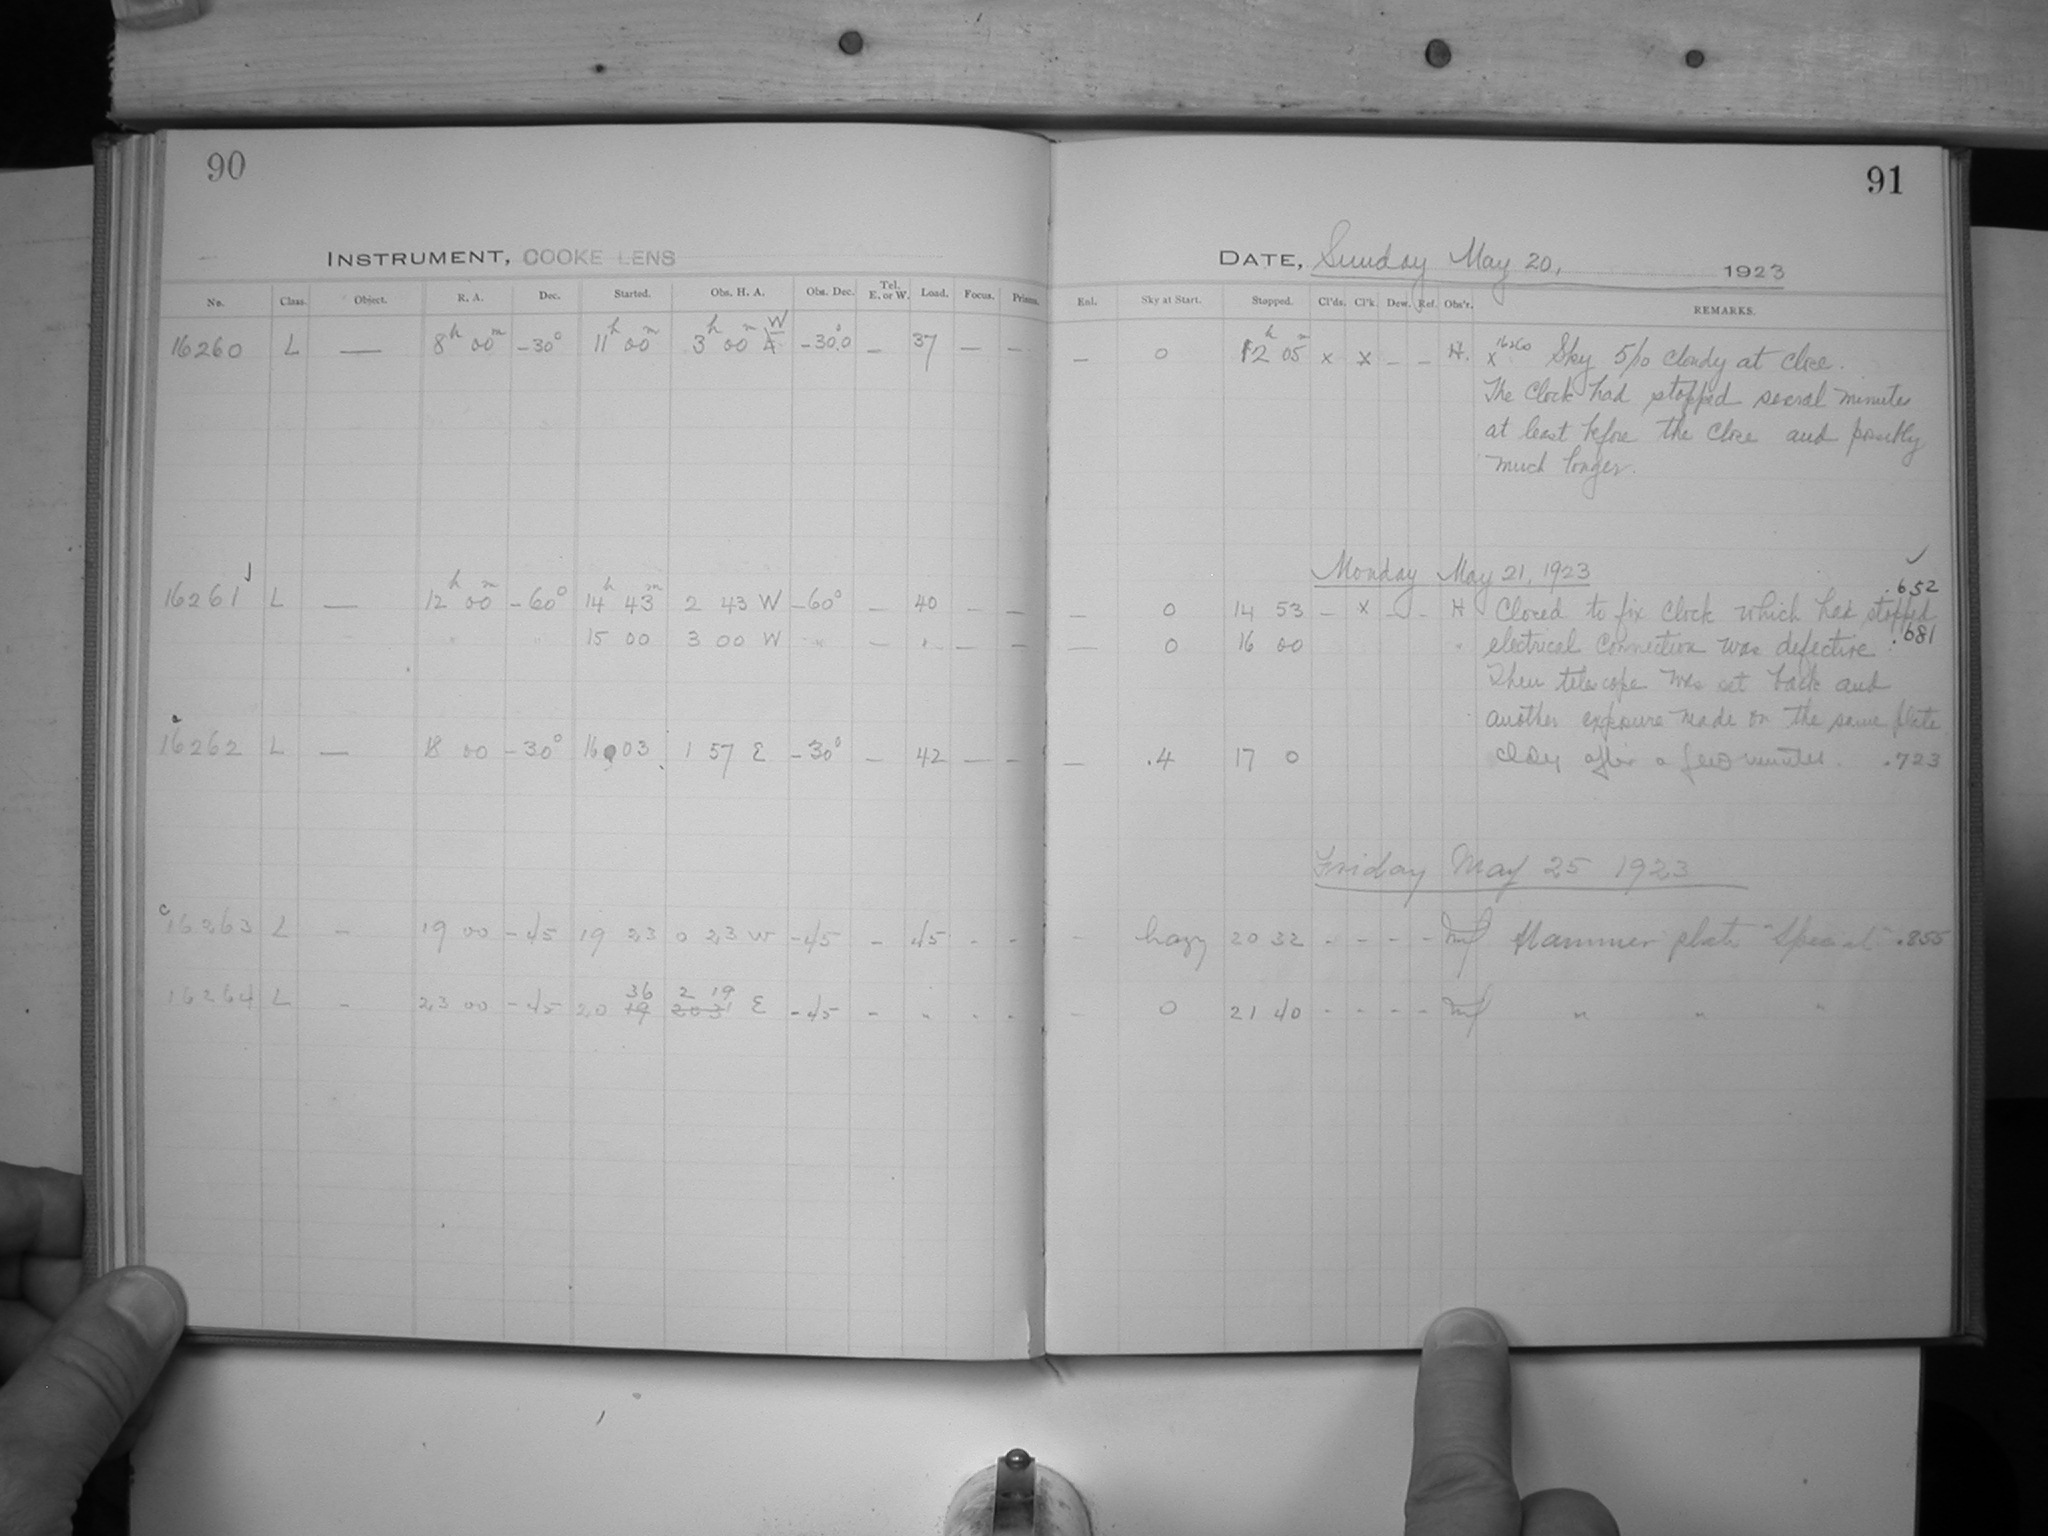 90
INSTRUMENT, COOKE LENS
No. Class. Object. R. A. Dec. Started. Obs. H. A. Obs. Dec. Tel. E. or W. Load. Focus. Prisms.
16260 L — 8h 00m -30° 11h 00m 3h 00m W -30°.0 — 37 — —
16261 L — 12h 00m -60° 14h 43m 2 43 W -60° — 40 — —
" " 15 00 3 00 W " — " — —
16262 L — 18 00 -30° 16 03 1 57 E -30° — 42 — —
16263 L - 19 00 -45 19 23 0 23 W -45 - 45 - -
16264 L - 23 00 -45 20 19 36 20 31 2 19 E -45 - " - -
91
DATE, Sunday May 20, 1923
Enl. Sky at Start. Stopped. Cl'ds. Cl'k. Dew. Ref. Obs'r. REMARKS.
— 0 12h 05m x x — — H. x16260 Sky 5/10 cloudy at close.
The Clock had stopped several minutes
at least before the close and possibly
much longer.
Monday May 21, 1923
.652
— 0 14 53 — x — - H Closed to fix clock which has stopped
.681
— 0 16 00 " electrical connection was defective.
Then telescope was set back and
another exposure made on the same plate
— .4 17 0 after a few minutes. .723
Friday May 25 1923
- hazy 20 32 - - - - Hammer plate "Special" .855
- 0 21 40 - - - - " " "